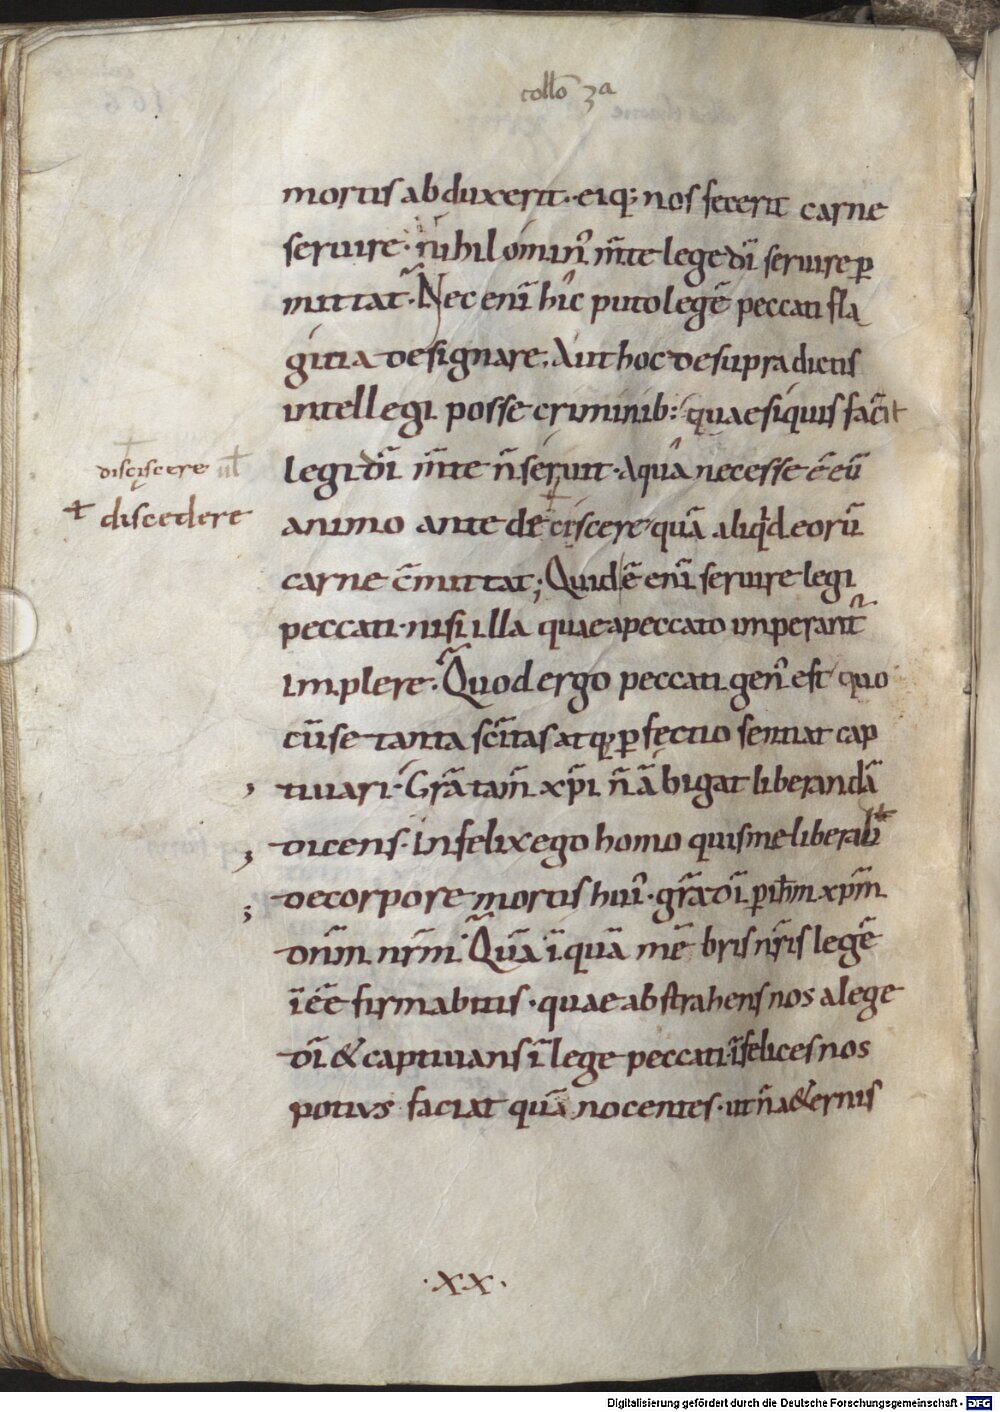 collo 3a
mortis abduxerit · eiq; nos fecerit carne
seruire · nihilomin᾽ m̄te lege dī seruire p̲
mittat · Nec enī hĭc puto legē peccati fla
gitia designare · Aut hoc de supradictis
intellegi posse criminib: quae siquis facit
legi dī m̄te n̄ seruit · A qua necesse ē eū
disciscere uł
animo ante desciscere quā aliqd eorū
discedere
carne c̄mittat ; Quid ē enī seruire legi
peccati · nisi illa quae a peccato imperant᾽
implere · Quod ergo peccati gen᾽ est quo
cū se tanta sc̄itas atq; p̲fectio sentiat cap
tiuari · Gr̄a tam̄ xp̄i n̄ ābigat liberandā
dicens · Infelix ego homo quis me liberabit
de corpore mortis hui᾽ · gr̄a dī p̲ ih̄m xp̄m
dn̄m nr̄m · Quā ī quā mē bris nr̄is legē
īeē firmabitis · quae abstrahens nos a lege
dī & captiuans ī lege peccati · īfelices nos
potius faciat quā nocentes · ut n̄ a&ernis
· xx ·
Digitalisierung gefördert durch die Deutsche Forschungsgemeinschaft - DFG